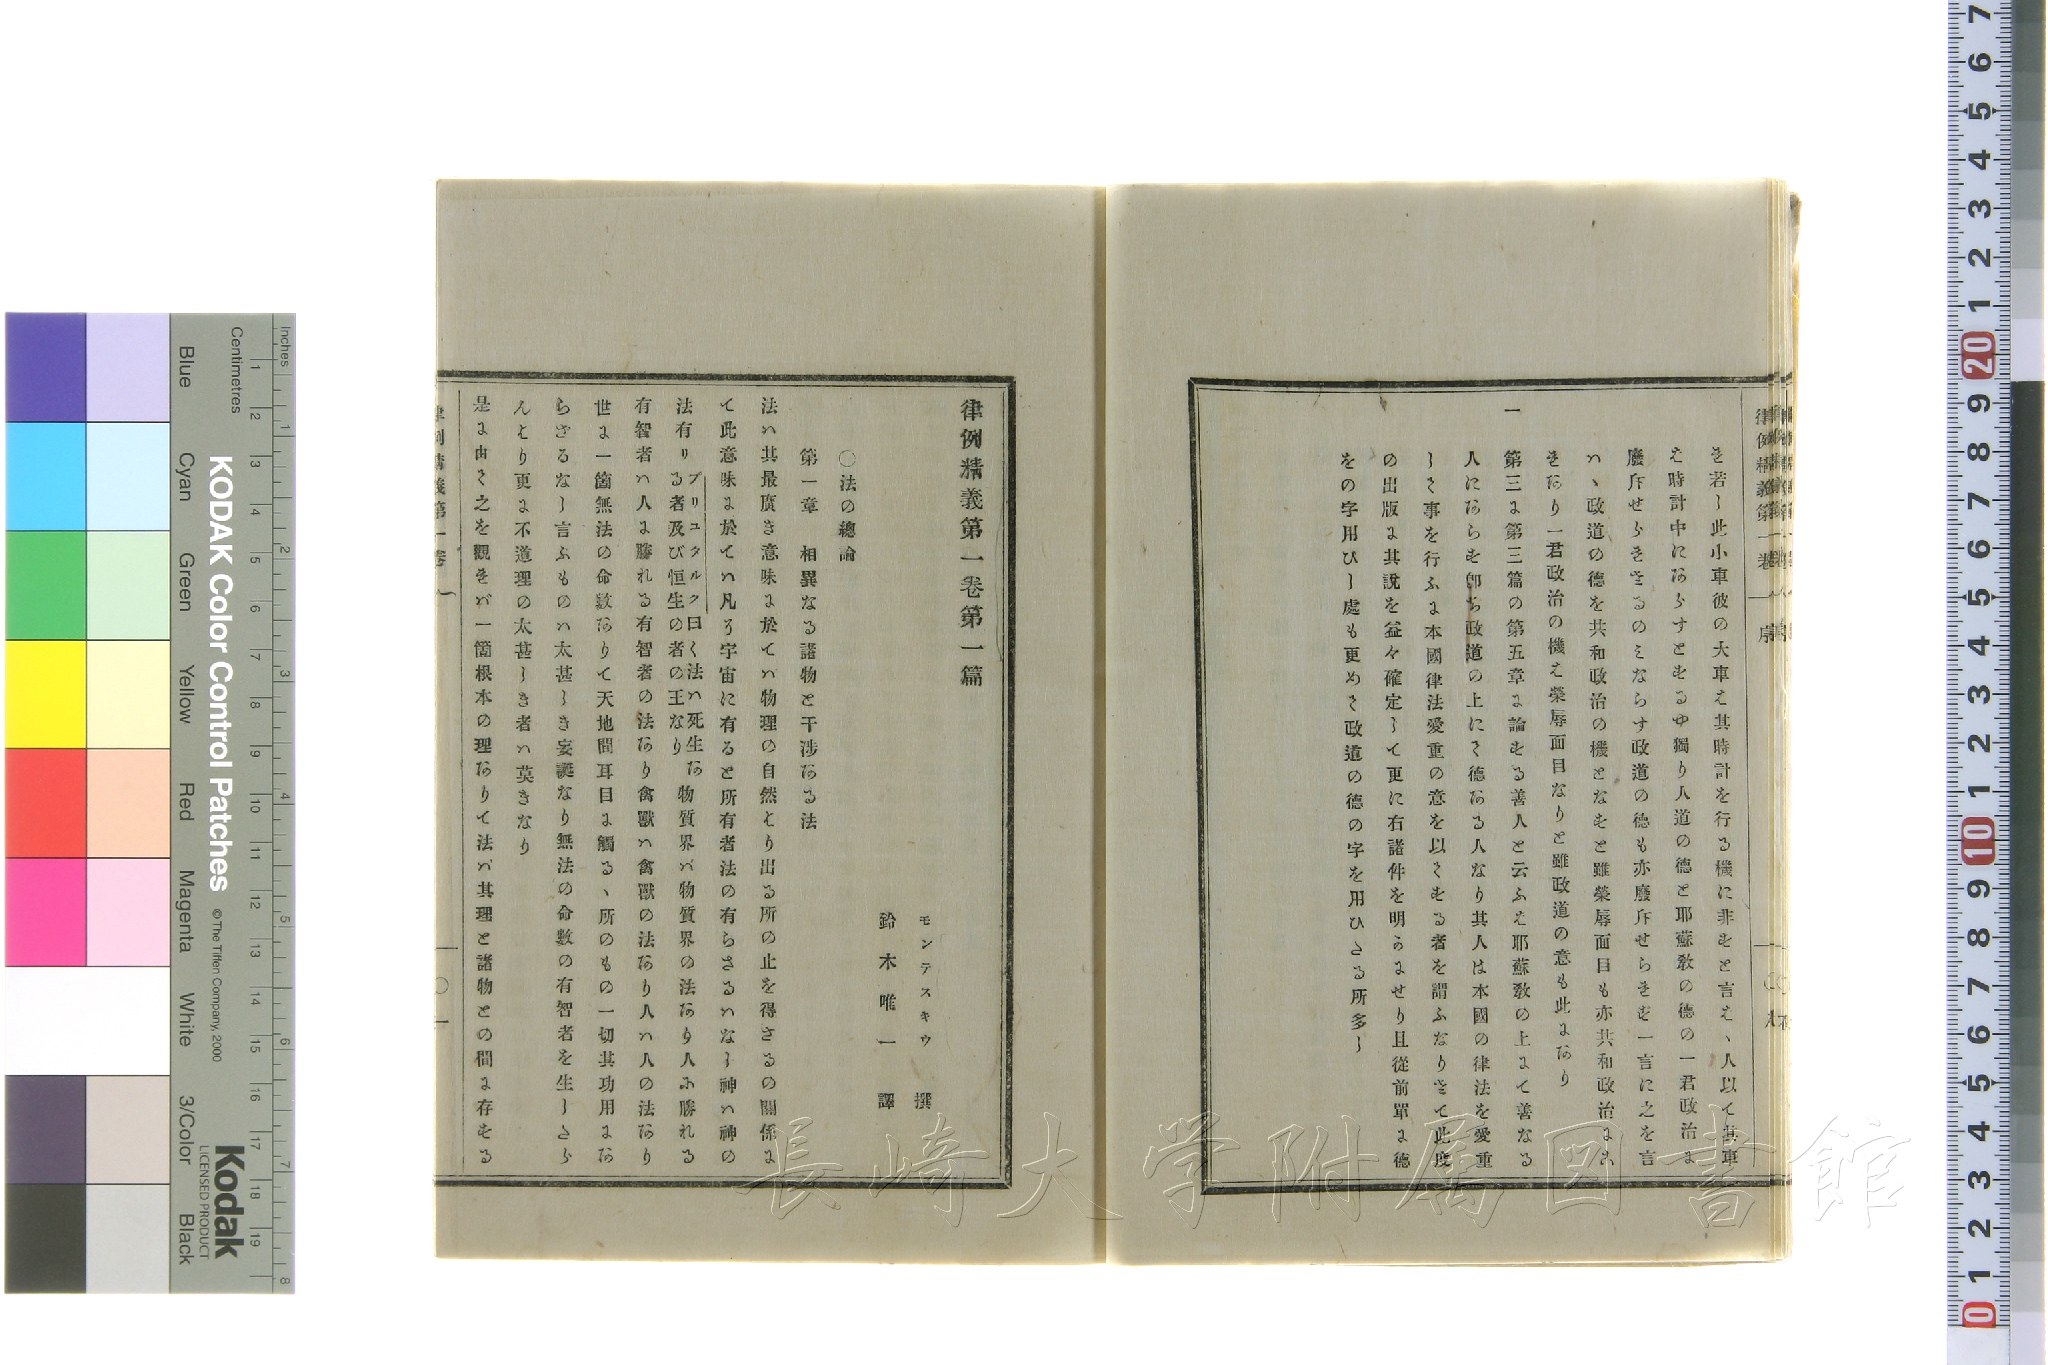 を若し此小車彼の大車は其時計を行る機に非もと言は、人以て其車
は時計中にあらすともる中獨り人道の德と耶蘇敎の德の一君政治ま
廢斥せらをさるのみならす政道の德も亦廢斥せらをも一言に之を言
ハ、政道の德を共和政治の機となもと雖榮辱面目も亦共和政治まあ
をあり一君政治の機は榮辱面目なりと雖政道の意も此まあり
一 第三ま第三篇の第五章ま論もる善人と云ふは耶蘇敎の上まて善なる
人にあらも卽ち政道の上にて德ある人なり其人は本國の律法を愛重
して事を行ふま本國律法愛重の意を以てもる者を謂ふなりさて此度
の出版ま其說を益々確定して更に右諸件を明らませり且從前單ま德
をの字用ひし處も更めて政道の德の字を用ひたる所多し
律例精義第一卷 序
律例精義第一卷第一篇
モンテスキウ 撰
鈴木唯一 譯
○法の總論
第一章 相異なる諸物と干涉ある法
法ハ其最廣き意味ま於てハ物理の自然より出る所の止を得さるの關係ま
て此意味ま於てハ凡ろ宇宙に有ると所有者法の有らさるハなし神ハ神の
法有り プリユタルク曰く法ハ死生ある者及び恒生の者の王なり 物質界ハ物質界の法あり人ふ勝れる
有智者ハ人ま勝れる有智者の法あり禽獸ハ禽獸の法あり人ハ人の法あり
世ま一箇無法の命數ありて天地間耳目ま觸る、所のもの一切其功用まあ
らさるなし言ふものハ太甚しき妄誕なり無法の命數の有智者を生したら
んより更ま不道理の太甚しき者ハ莫きなり
是ま由て之を觀をバ一箇根本の理ありて法ハ其理と諸物との間ま存もる
長崎大学附属図書館
KODAK Color Control Patches
© The Tiffen Company, 2000
Kodak
LICENSED PRODUCT
Inches
Centimetres
Blue
Cyan
Green
Yellow
Red
Magenta
White
3/Color
Black